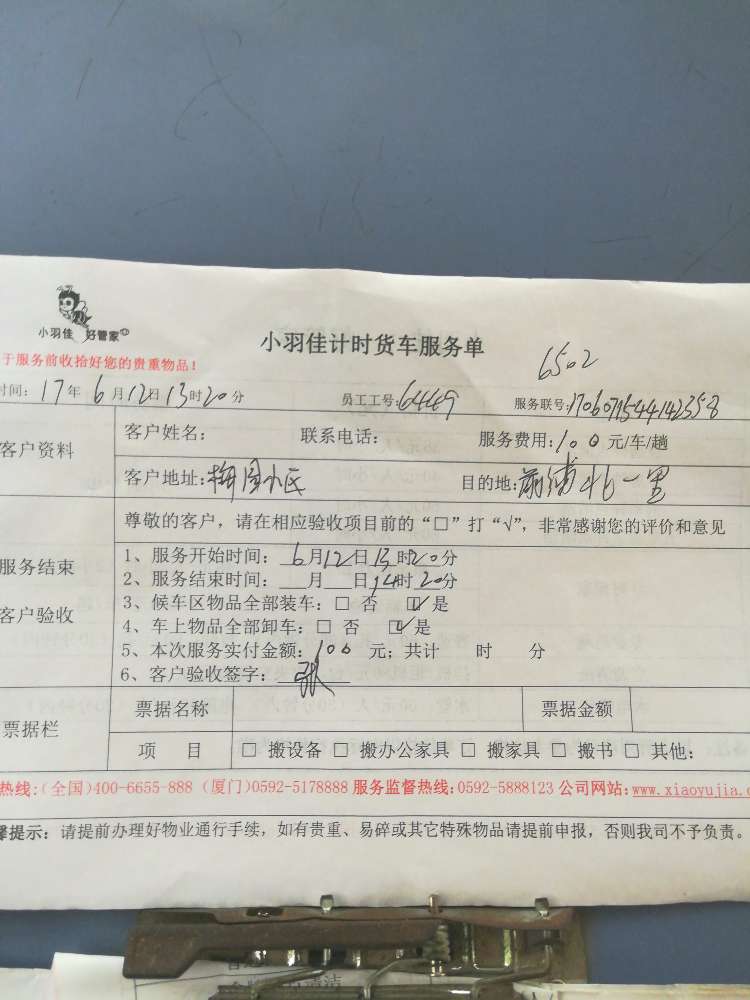 小羽佳 好管家
小羽佳计时货车服务单
6502
于服务前收拾好您的贵重物品！
时间：17年6月12日13时20分 员工工号：64469 服务联号：1706071544142358
客户资料
客户姓名： 联系电话： 服务费用：100元/车/趟
客户地址：梅园小区 目的地：前浦北一里
尊敬的客户，请在相应验收项目前的“□”打“√”，非常感谢您的评价和意见
服务结束
客户验收
1、服务开始时间：6月12日13时20分
2、服务结束时间：__月__日14时20分
3、候车区物品全部装车：□ 否 ☑ 是
4、车上物品全部卸车：□ 否 ☑ 是
5、本次服务实付金额：100元；共计 时 分
6、客户验收签字：张
票据栏
票据名称 票据金额
项 目 □ 搬设备 □ 搬办公家具 □ 搬家具 □ 搬书 □ 其他：
热线：（全国）400-6655-888（厦门）0592-5178888 服务监督热线：0592-5888123 公司网站：www.xiaoyujia.c
馨提示：请提前办理好物业通行手续，如有贵重、易碎或其它特殊物品请提前申报，否则我司不予负责。